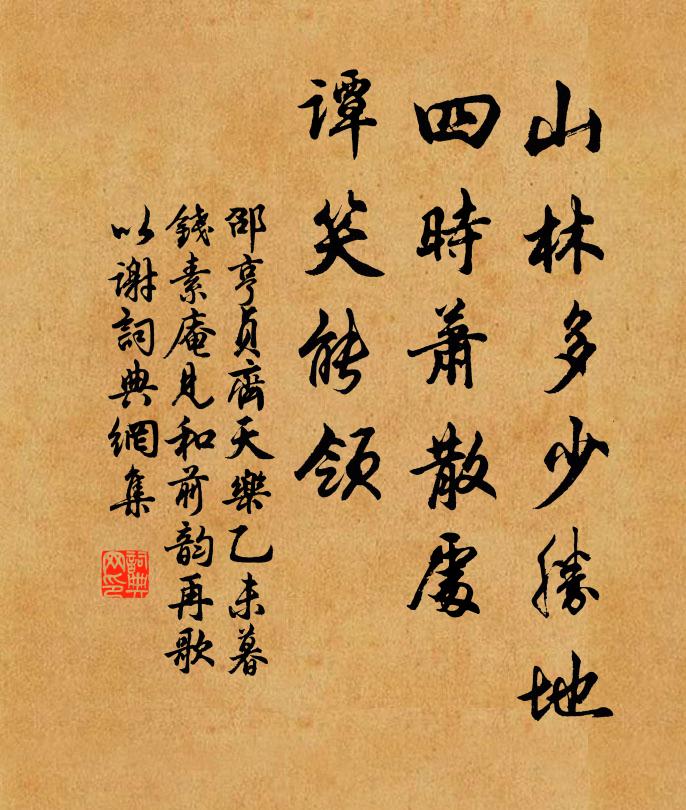 山林多少勝地
四時蕭散處
譚笑能領
邵亨貞齊天樂乙未暮
錢素庵見和前韵再歌
以谢詞典網集
詞典网印